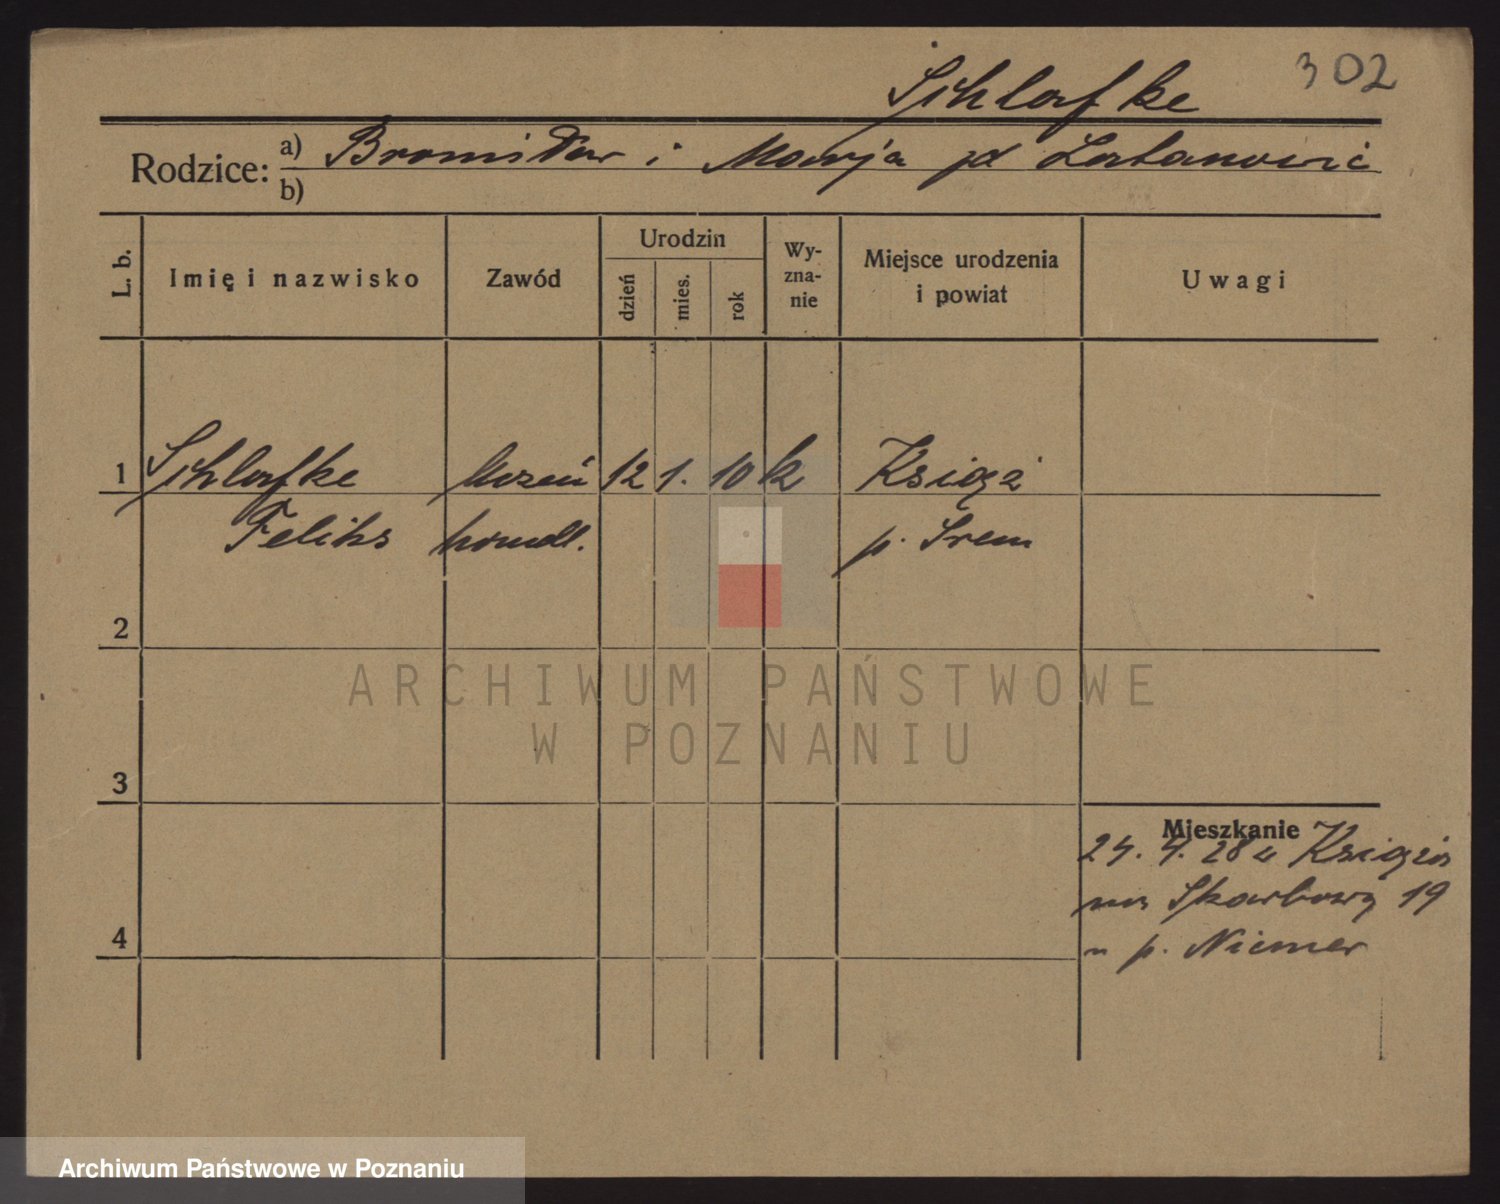 302
Schlafke
Rodzice: a) Bronisław i Marja zd Łatanowić
b)
L. b.
Imię i nazwisko
Zawód
Urodzin
dzień
mies.
rok
Wy-
zna-
nie
Miejsce urodzenia
i powiat
Uwagi
1 Schlafke uczeń 12 1. 10 k Książ
Feliks handl. p. Śrem
2
3
4
Mieszkanie
24. 4. 28 z Książa
na Skarbową 19
p. Niemer
ARCHIWUM PAŃSTWOWE
W POZNANIU
Archiwum Państwowe w Poznaniu